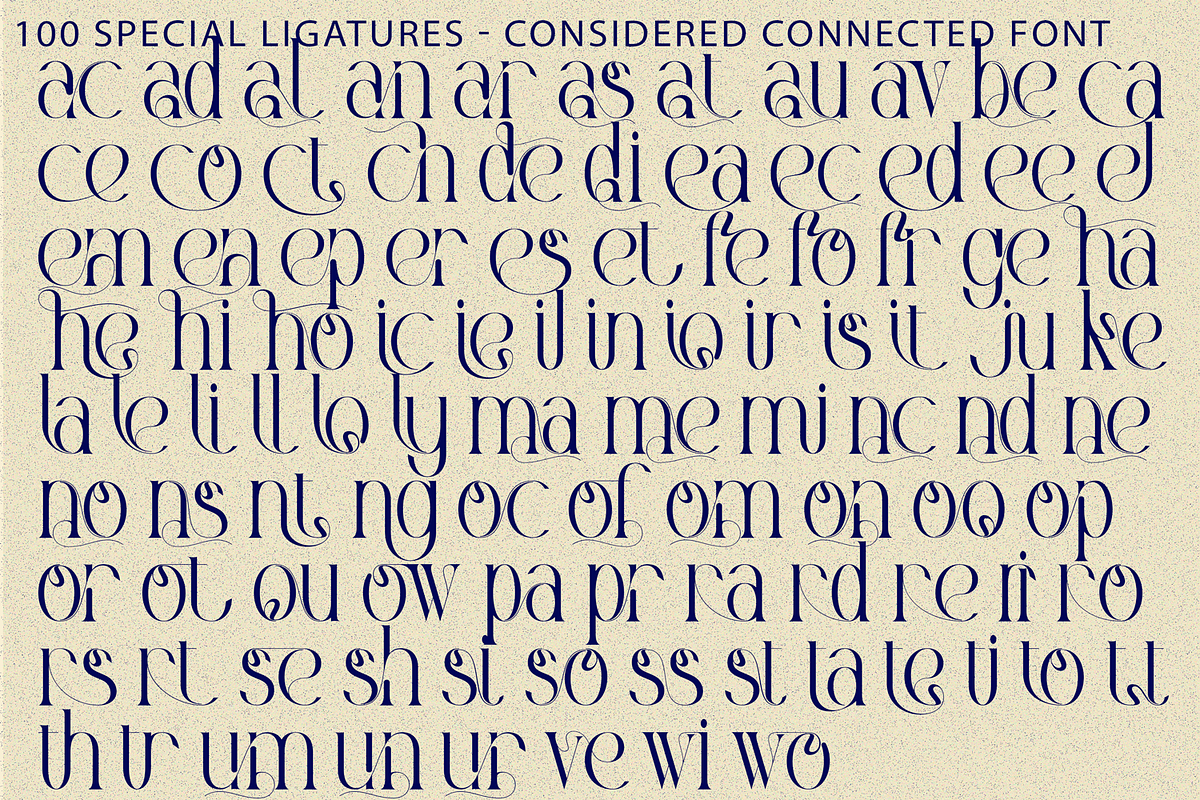 100 SPECIAL LIGATURES - CONSIDERED CONNECTED FONT
ac ad al an ar as at au av be ca
ce co ct ch de di ea ec ed ee el
em en ep er es et fe fo fr ge ha
he hi ho ic ie il in io ir is it ju ke
la le li ll lo ly ma me mi nc nd ne
no ns nt ng oc of om on oo op
or ot ou ow pa pr ra rd re ri ro
rs rt se sh si so ss st ta te ti to tt
th tr um un ur ve wi wo